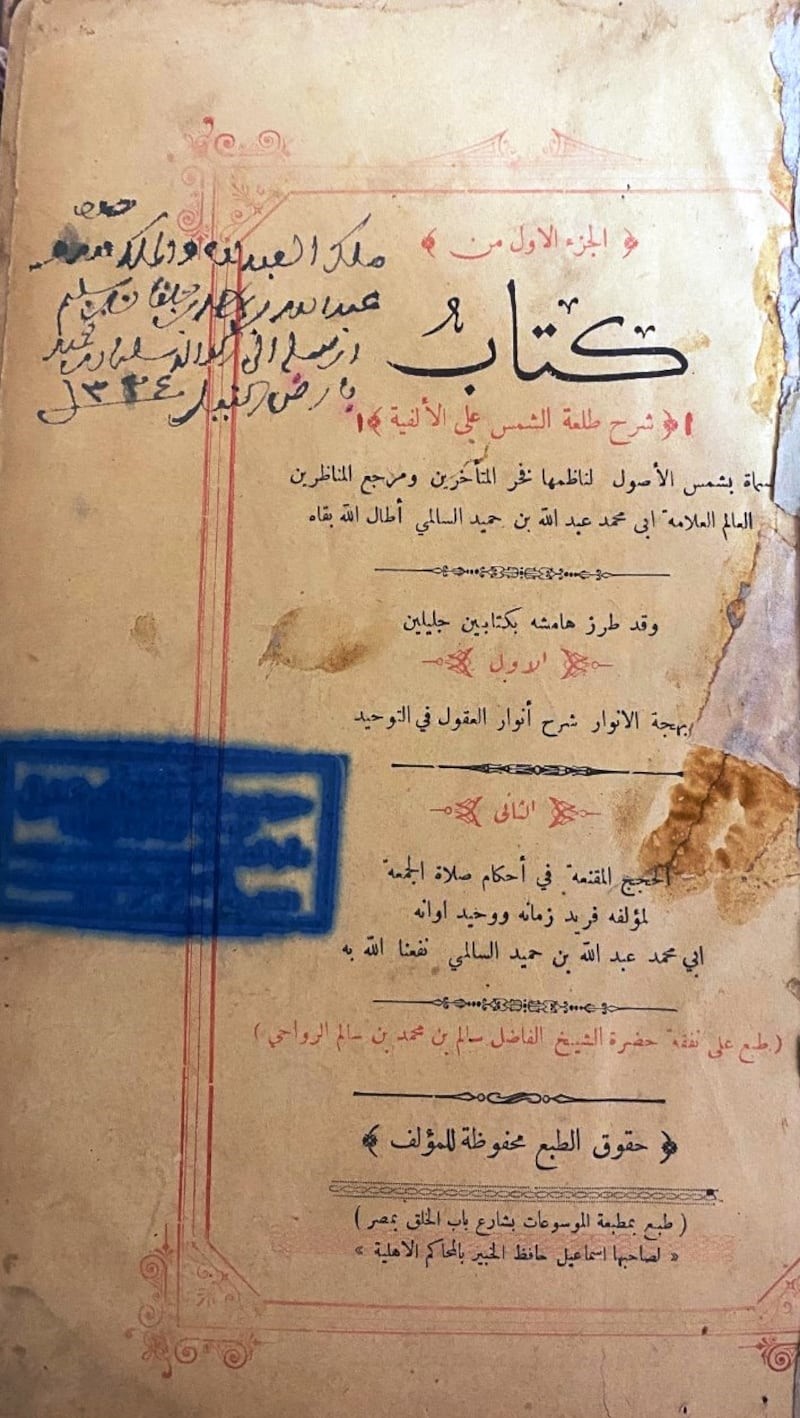 ﴿ الجزء الاول من ﴾
كتاب
﴿ شرح طلعة الشمس على الألفية ﴾
بشمس الأصول لناظمها فخر المتأخرين ومرجع المناظرين
العالم العلامة ابى محمد عبد الله بن حميد السالمي أطال الله بقاه
وقد طرز هامشه بكتابين جليلين
الاول
بهجة الانوار شرح أنوار العقول في التوحيد
الثانى
الحجج المقنعة في أحكام صلاة الجمعة
لمؤلفه فريد زمانه ووحيد اوانه
ابي محمد عبد الله بن حميد السالمي نفعنا الله به
( طبع على نفقة حضرة الشيخ الفاضل سالم بن محمد بن سالم الرواحي )
﴿ حقوق الطبع محفوظة للمؤلف ﴾
( طبع بمطبعة الموسوعات بشارع باب الخلق بمصر )
« لصاحبها اسماعيل حافظ الخبير بالمحاكم الاهلية »
ملك العبد لله والملك
١٣٢٤